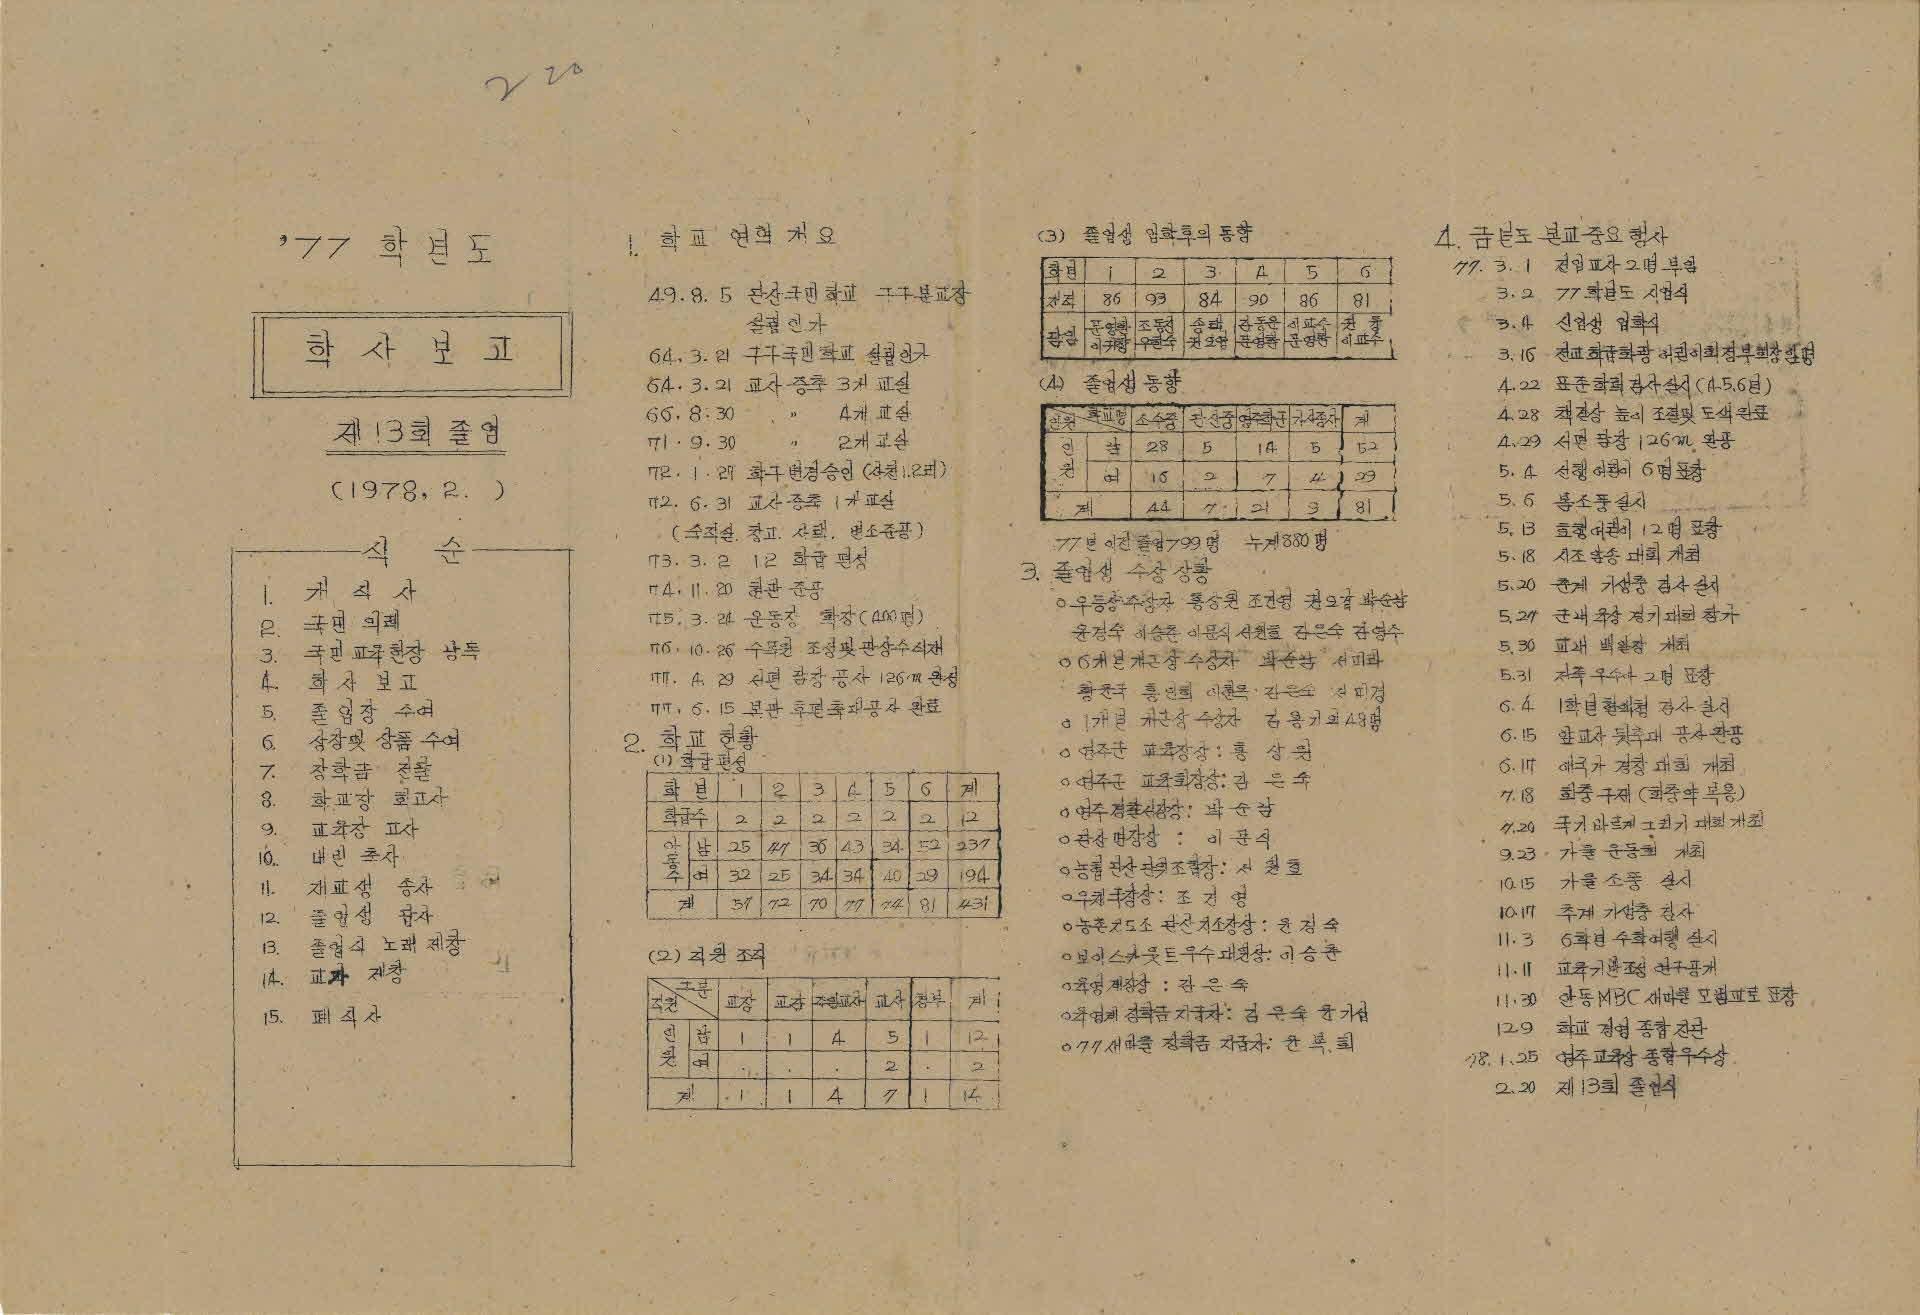 2 20
'77 학년도
학사보고
제13회 졸업
(1978, 2. )
식 순
1. 개식사
2. 국민의례
3. 국민교육헌장 낭독
4. 학사보고
5. 졸업장 수여
6. 상장및 상품 수여
7. 장학금 전달
8. 학교장 회고사
9. 교육장 고사
10. 내빈 축사
11. 재교생 송사
12. 졸업생 답사
13. 졸업식 노래 제창
14. 교가 제창
15. 폐식사
1. 학교 연혁 개요
49. 8. 5 단산국민학교 구구분교장
설립인가
64. 3. 21 구구국민학교 설립인가
64. 3. 21 교사증축 3개교실
66. 8. 30 〃 4개교실
71. 9. 30 〃 2개교실
72. 1. 27 학구변경승인
72. 6. 31 교사증축 1개교실
(숙직실. 창고. 사택. 변소준공)
73. 3. 2 12 학급 편성
74. 11. 20 현관 준공
75. 3. 24 운동장 확장(400평)
76. 10. 26 수목원 조성및 관상수식재
77. 4. 29 서편 담장 공사 126m 완성
77. 6. 15 본관 후편축대공사 완료
2. 학교현황
(1) 학급편성
학년 1 2 3 4 5 6 계
학급수 2 2 2 2 2 2 12
아동수 남 25 47 36 43 34 52 237
여 32 25 34 34 40 29 194
계 57 72 70 77 74 81 431
(2) 직원조직
직원 구분 교장 교감 주임교사 교사 청부 계
인원 남 1 1 4 5 1 12
여 . . . 2 . 2
계 1 1 4 7 1 14
(3) 졸업생 입학후의 동향
학년 1 2 3 4 5 6
재적 86 93 84 90 86 81
담임
(4) 졸업생 동향
인원 학교명 소수중 단산중 계
인원 남 28 5 14 5 52
여 16 2 7 4 29
계 44 7 21 9 81
77년 이전 졸업 799명 누계 880명
3. 졸업생 수상 상황
o우등상수상자 홍상원 조건영 권오길 박순남
윤경숙 이승춘 이문식 서원호 김은숙 김영수
o6개년개근상 수상자 박순남 서미화
황윤국 홍인희 김은숙
o1개년 개근상 수상자 김용기외48명
o영주군 교육장상 : 홍상원
o영주군 교육회장상 : 김은숙
o영주경찰서장상 : 박순남
o단산면장상 : 이문식
o농협 단산단위조합장 : 서원호
o우체국장상 : 조건영
o농촌지도소 단산지소장상 : 윤경숙
o보이스카웃트우수대원상 : 이승춘
o육영재장상 : 김은숙
o육영재 장학금 지급자 : 김은숙 윤기섭
o77새마을 장학금 지급자 : 윤복희
4. 금년도 본교중요행사
77. 3. 1 전입교사 2명 부임
3. 2 77학년도 시업식
3. 4 신입생 입학식
3. 16 전교학급회장 어린이회정부회장
4. 22 표준학력검사실시(4.5.6년)
4. 28 책걸상 높이 조절및 도색완료
4. 29 서편 담장 126m 완공
5. 4 선행어린이 6명표창
5. 6 봄소풍실시
5. 13 효행어린이 12명 표창
5. 18 시조암송 대회 개최
5. 20 춘계 기생충 검사실시
5. 27 군내육상 경기대회 참가
5. 30 교내 백일장 개최
5. 31 저축우수아 2명 표창
6. 4 1학년 검사 실시
6. 15 앞교사 뒷축대 공사완공
6. 17 애국가 경창 대회 개최
7. 18 회충구제(회충약 복용)
7. 20 국기바르게그리기대회개최
9. 23 가을 운동회 개최
10. 15 가을 소풍 실시
10. 17 추계 기생충 검사
11. 3 6학년 수학여행 실시
11. 11 교육기반조성 연구공개
11. 30 안동MBC 새마을 모범교로 표창
12. 9 학교 경영 종합진단
78. 1. 25 영주교육상 종합우수상
2. 20 제13회 졸업식